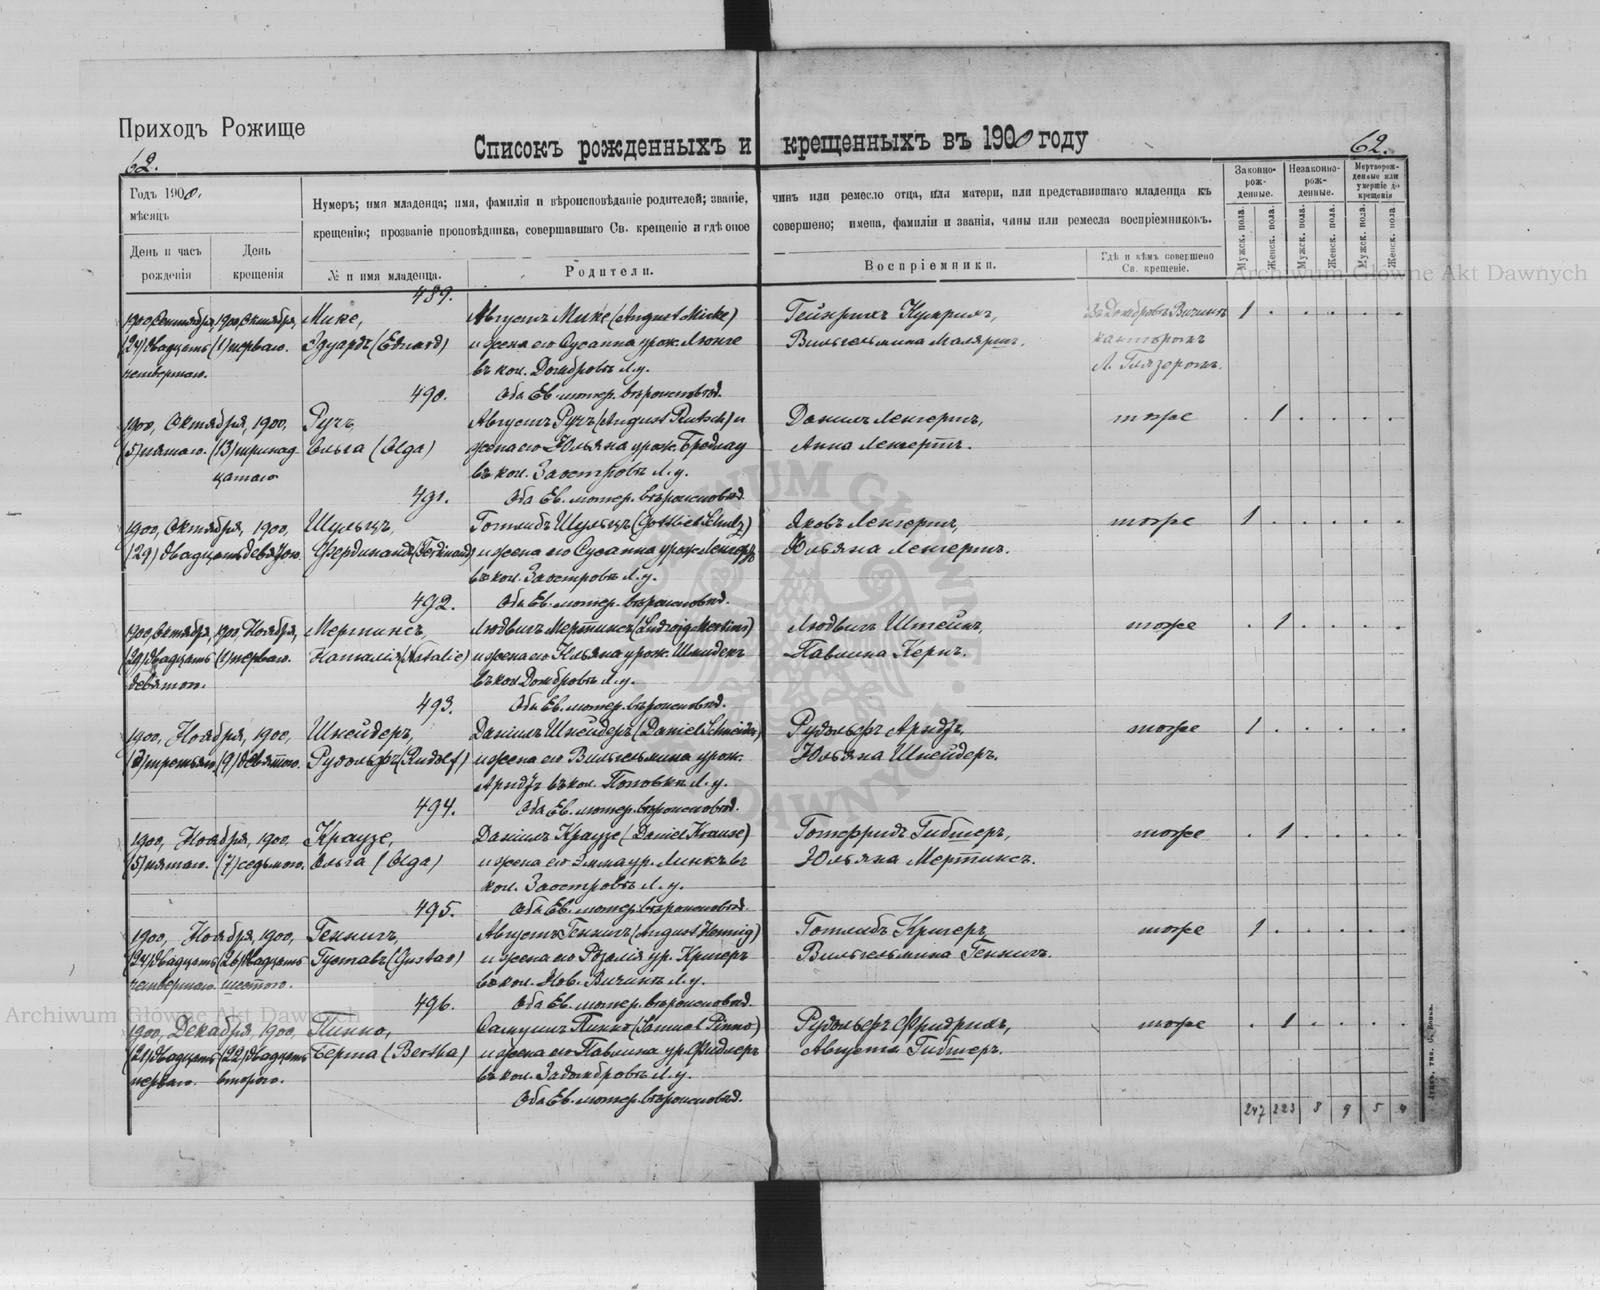 Приходъ Рожище
Списокъ рожденныхъ и крещенныхъ въ 1900 году
62.
62.
Годъ 1900.
мѣсяцъ
День и часъ рожденія
День крещенія
Нумеръ; имя младенца; имя, фамилія и вѣроисповѣданіе родителей; званіе, чинъ или ремесло отца, или матери, или представившаго младенца къ
крещенію; прозваніе проповѣдника, совершавшаго Св. крещеніе и гдѣ оное совершено; имена, фамиліи и званія, чины или ремесла воспріемниковъ.
№ и имя младенца.
Родители.
Воспріемники.
Гдѣ и кѣмъ совершено Св. крещеніе.
Законно-рож-денные.
Незаконно-рож-денные.
Мертворож-денные или умершіе до крещенія
Мужск. пола.
Женск. пола.
Мужск. пола.
Женск. пола.
Мужск. пола.
Женск. пола.
489.
1900, Сентября, 1900, Октября, Мике, Августъ Мике (August Micke) Гейнрихъ 1
(24) двадцать (1) перваго. Эдуардъ (Eduard) и жена его Сусанна урож. Вильгельмина канторомъ
четвертаго. въ кол. Домбровъ Л.у.
490. Оба Ев. лютер. вѣроисповѣд.
1900, Октября, 1900, Ручъ, Августъ Ручъ (August Rutsch) и Данилъ Ленгертъ, тоже 1
(5) пятаго. (13) тринад Ольга (Olga) жена его Юльяна урож. Бредлау Анна Ленгертъ.
цатаго въ кол. Заостровъ Л.у.
491. Оба Ев. лютер. вѣроисповѣд.
1900, Октября, 1900, Шульцъ, Готлибъ Шульцъ (Gottlieb Schulz) Яковъ Ленгертъ, тоже 1
(29) двадцать девятаго. Фердинандъ (Ferdinand) и жена его Сусанна урож. Ленгертъ Юльяна Ленгертъ.
въ кол. Заостровъ Л.у.
492. Оба Ев. лютер. вѣроисповѣд.
1900, Октября, 1900, Ноября, Мертинсъ, Людвигъ Мертинсъ (Ludwig Mertins) Людвигъ Штейнъ, тоже 1
(29) двадцать (1) перваго. Наталія (Natalie) и жена его Юльяна урож. Павлина Кернъ.
девятаго. въ кол. Домбровъ Л.у.
493. Оба Ев. лютер. вѣроисповѣд.
1900, Ноября, 1900, Шнейдеръ, Данилъ Шнейдеръ (Daniel Schneider) Рудольфъ Арндтъ, тоже 1
(3) третьяго (9) девятаго. Рудольфъ (Rudolf) и жена его Вильгельмина урож. Юльяна Шнейдеръ.
Арндтъ въ кол. Поповка Л.у.
494. Оба Ев. лютер. вѣроисповѣд.
1900, Ноября, 1900, Краузе, Данилъ Краузе (Daniel Krause) Готфридъ тоже 1
(5) пятаго. (7) седьмого. Ольга (Olga) и жена его Эмма ур. Линкъ въ Юльяна Мертинсъ.
кол. Заостровъ Л.у.
495. Оба Ев. лютер. вѣроисповѣд.
1900, Ноября, 1900, Геннигъ, Августъ Геннигъ (August Hennig) Готлибъ Кригеръ, тоже 1
(24) двадцать (26) двадцать Густавъ (Gustav) и жена его Розалія ур. Кригеръ Вильгельмина Геннигъ.
четвертаго. шестого. въ кол. Нов. Вичинъ Л.у.
496. Оба Ев. лютер. вѣроисповѣд.
1900, Декабря, 1900, Пинно, Самуилъ Пинно (Samuel Pinno) Рудольфъ Фридрихъ, тоже 1
(21) двадцать (22) двадцать Берта (Bertha) и жена его Павлина ур. Фидлеръ Августа
перваго. второго. въ кол. Задомбровъ Л.у.
Оба Ев. лютер. вѣроисповѣд.
247 223 8 9 5 4
Archiwum Główne Akt Dawnych
Archiwum Główne Akt Dawnych